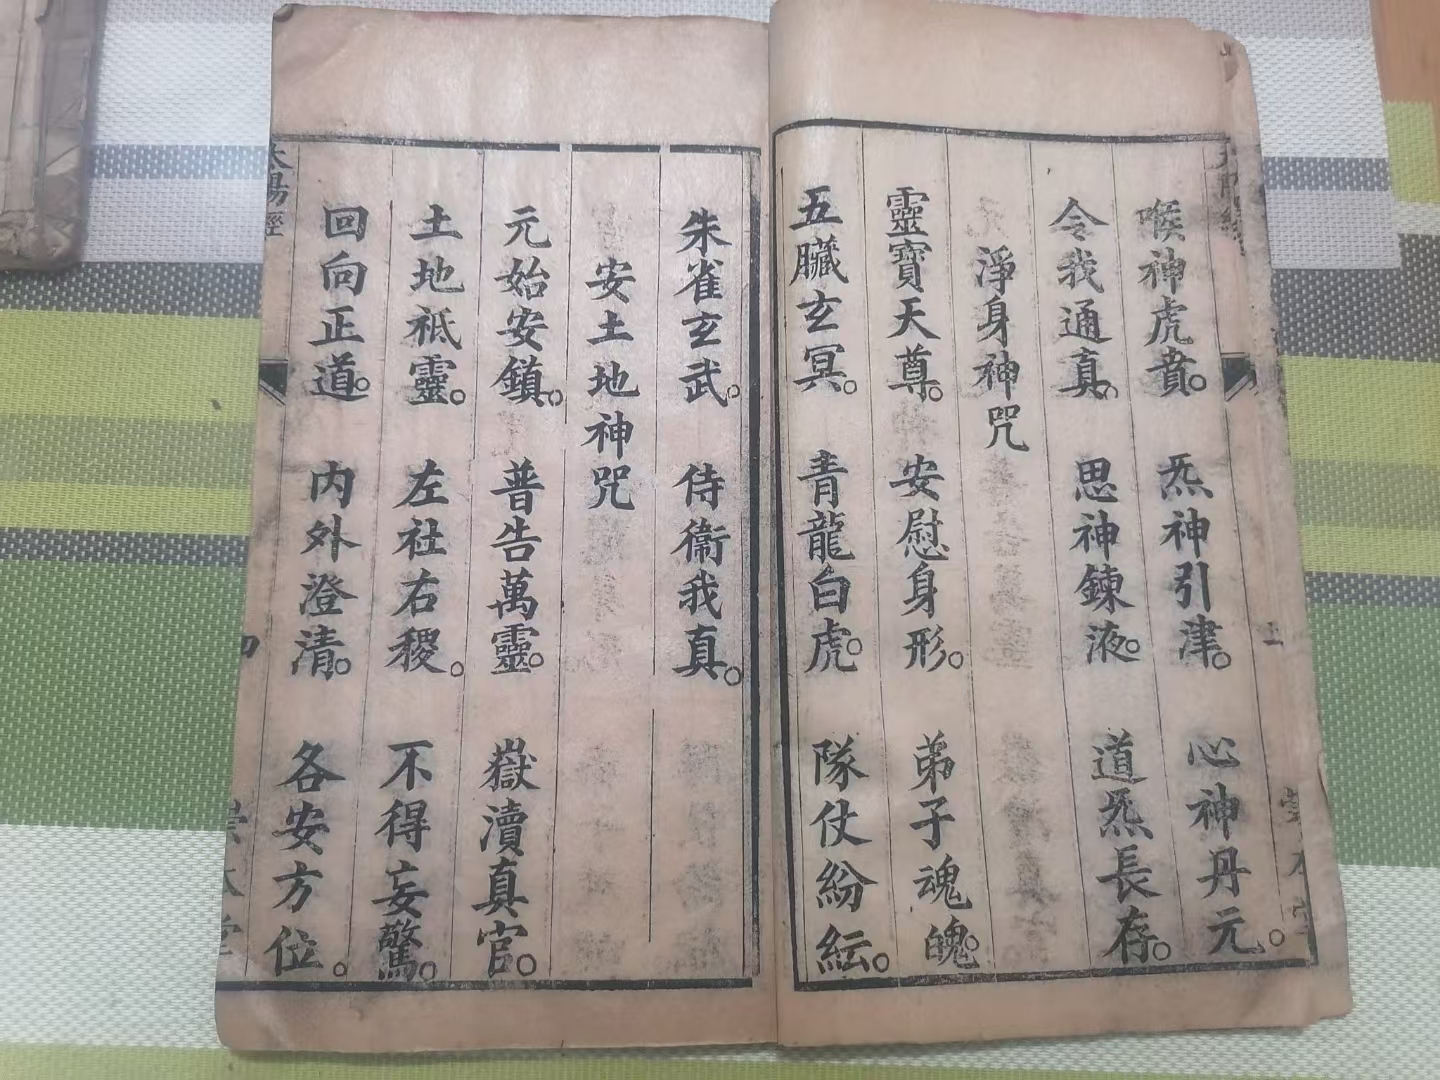 喉神虎賁。炁神引津。心神丹元。
令我通真。思神鍊液。道炁長存。
淨身神咒
靈寶天尊。安慰身形。弟子魂魄。
五臟玄冥。青龍白虎。隊仗紛紜。
朱雀玄武。侍衞我真。
安土地神咒
元始安鎮。普告萬靈。嶽瀆真官。
土地祇靈。左社右稷。不得妄驚。
回向正道。內外澄清。各安方位。
太陽經 四 崇本堂